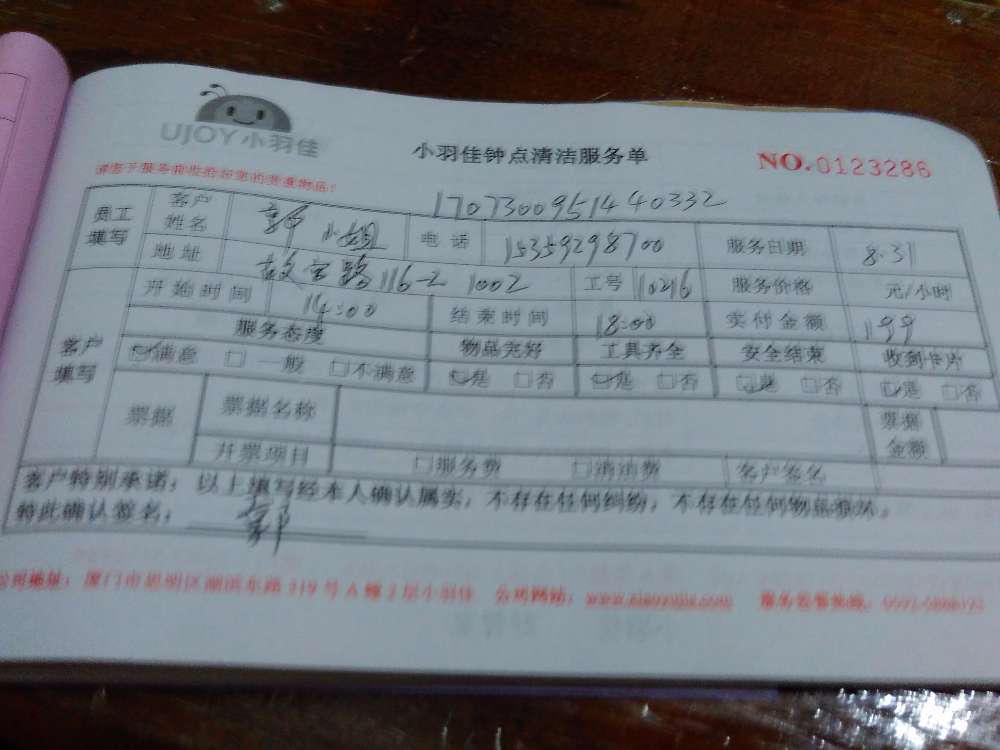 UJOY小羽佳
小羽佳钟点清洁服务单
NO.0123286
1707300951440332
员工填写 客户姓名 郭小姐 电话 15359298700 服务日期 8.31
地址 故宫路116-2 1002 工号 10216 服务价格 元/小时
客户填写 开始时间 14:00 结束时间 18:00 实付金额 199
服务态度 物品完好 工具齐全 安全结束 收到卡片
满意 一般 不满意 是 否 是 否 是 否 是 否
票据 票据名称 票据金额
开票项目 服务费 清洁费 客户签名
客户特别承诺：以上填写经本人确认属实，不存在任何纠纷，不存在任何物品损坏。
特此确认签名： 郭
公司地址：厦门市思明区湖滨东路319号A幢2层小羽佳 公司网站： 服务监督热线：